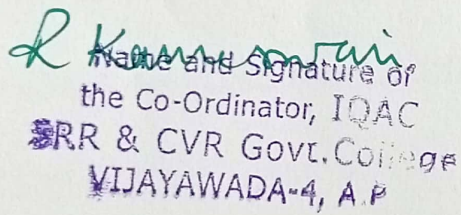 Name and Signature of
the Co-Ordinator, IQAC
SRR & CVR Govt. College
VIJAYAWADA-4, A.P